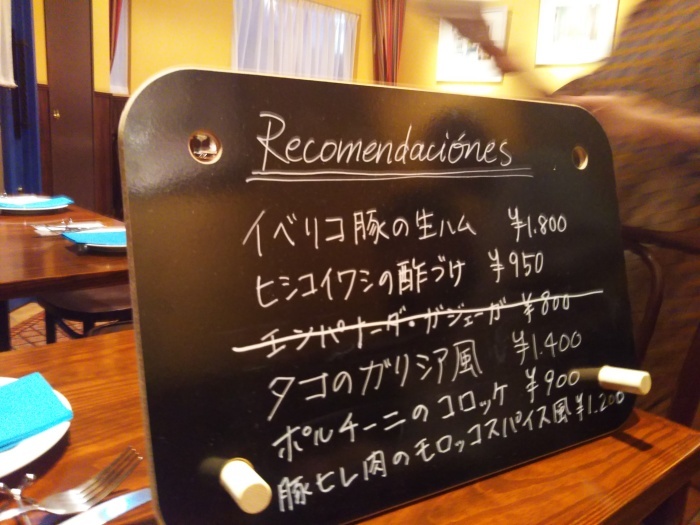 Recomendaciónes
イベリコ豚の生ハム ¥1.800
ヒシコイワシの酢づけ ¥950
エンパナーダ・ガジェーガ ¥800
タコのガリシア風 ¥1.400
ポルチーニのコロッケ ¥900
豚ヒレ肉のモロッコスパイス風 ¥1.200